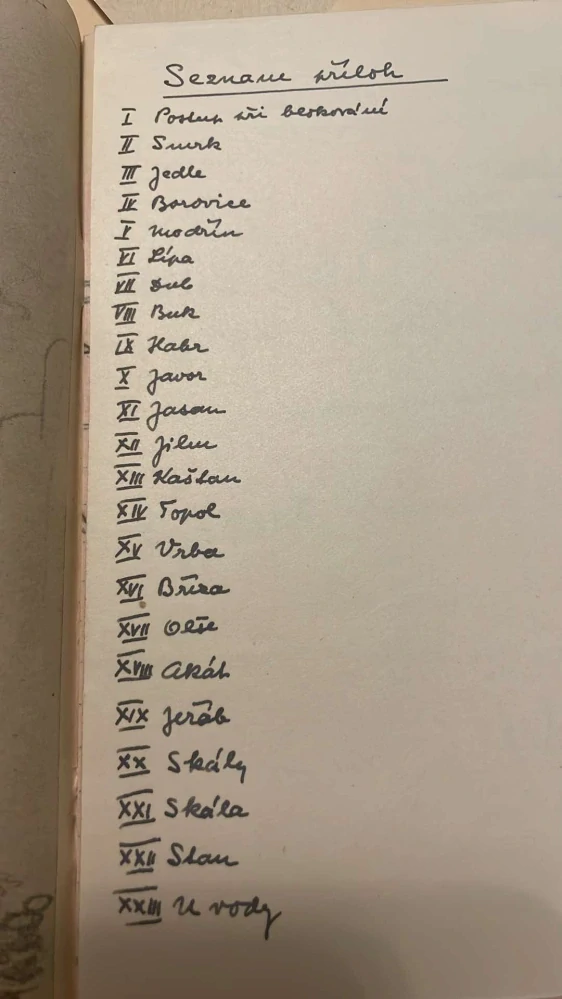 Seznam příloh
I Postup při beskování
II Smrk
III Jedle
IV Borovice
V Modřín
VI Lípa
VII Dub
VIII Buk
IX Habr
X Javor
XI Jasan
XII Jilm
XIII Kaštan
XIV Topol
XV Vrba
XVI Bříza
XVII Olše
XVIII Akát
XIX Jeřáb
XX Skály
XXI Skála
XXII Stan
XXIII U vody